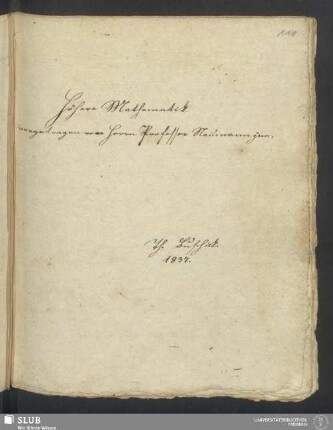 Höhere Mathematik
vorgetragen von Herrn Professor Naumann jun.
Th.
1837.
SLUB
Wir führen Wissen.
UNIVERSITÄTSBIBLIOTHEK
FREIBERG